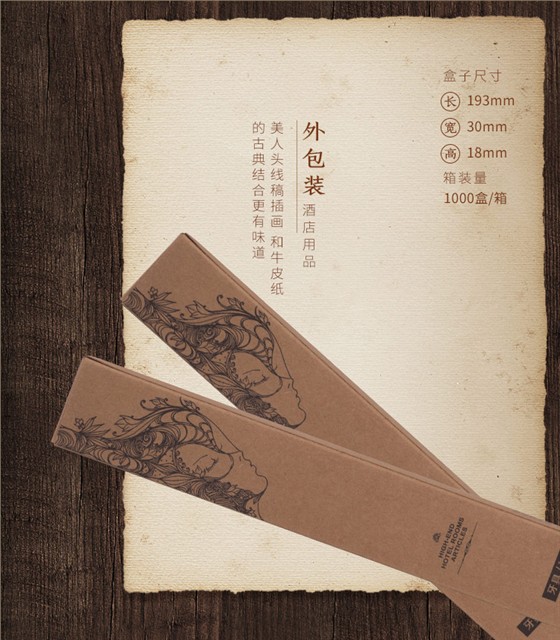 盒子尺寸
长 193mm
宽 30mm
高 18mm
箱装量
1000盒/箱
外包装 酒店用品
美人头线稿插画 和牛皮纸
的古典结合更有味道
HIGH-END
HOTEL ROOMS
ARTICLES
牙
牙